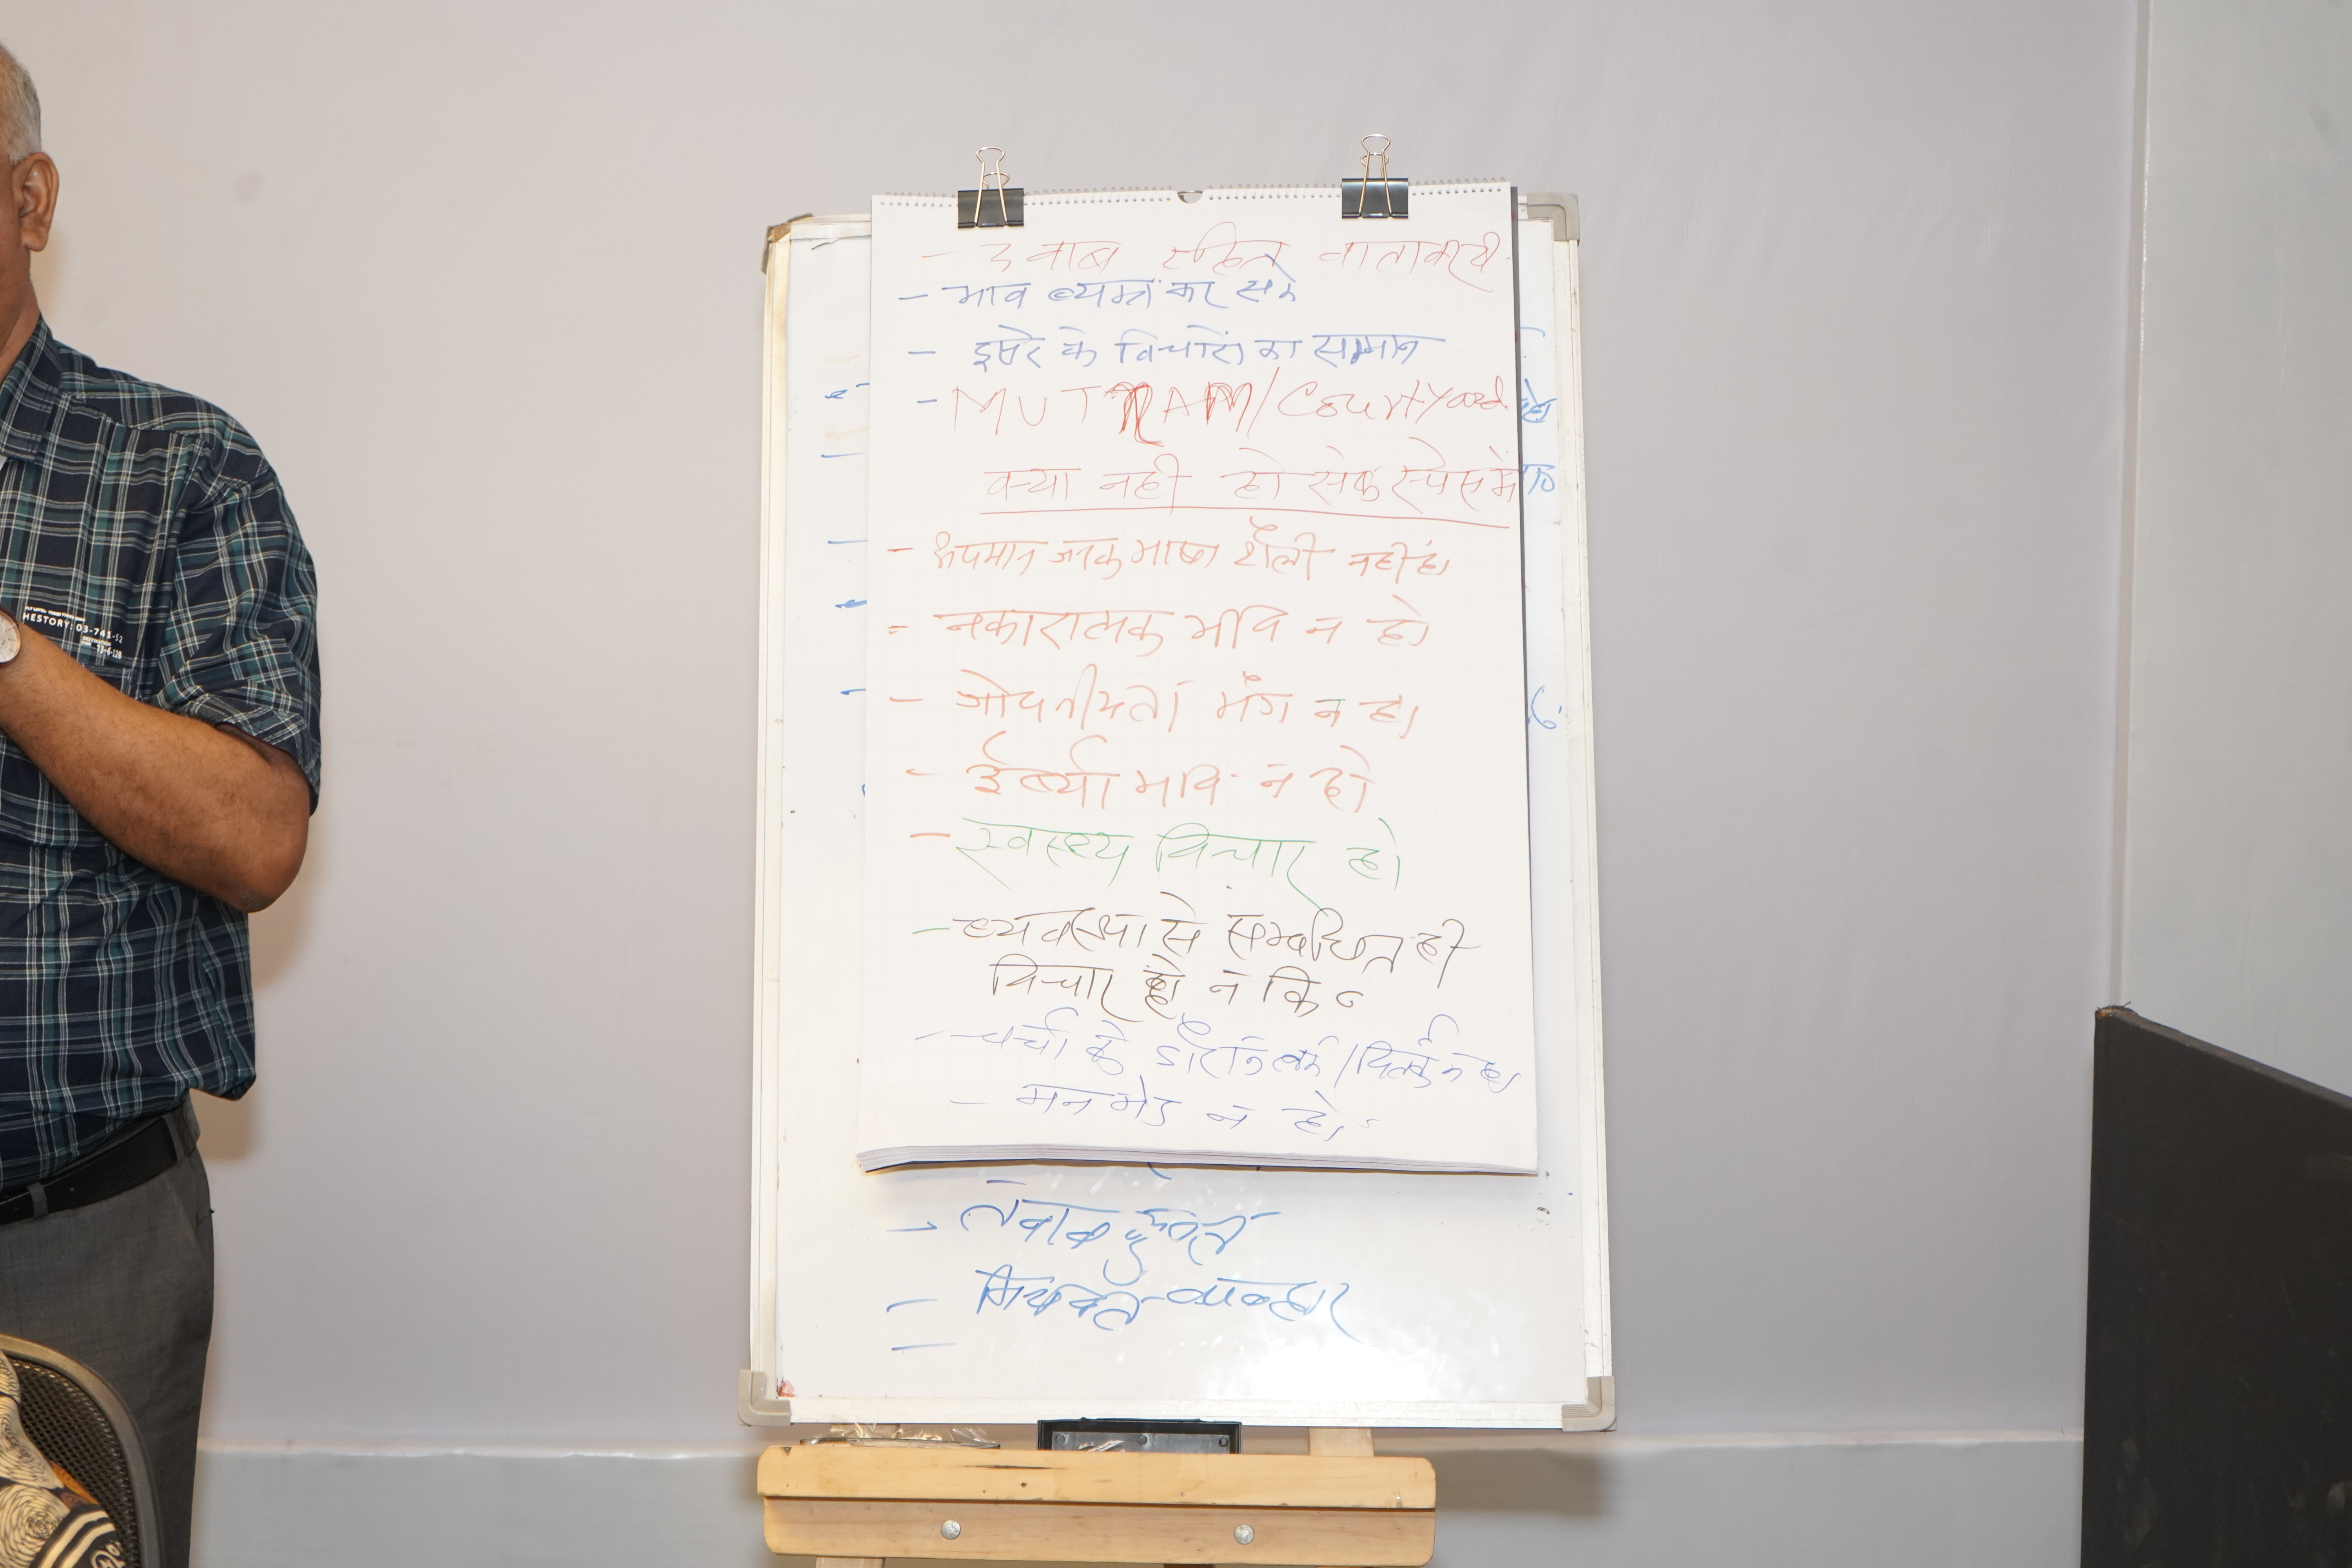 - दवाब रहित वातावरण
- भाव व्यक्त कर सके
- दूसरे के विचारों का सम्मान
- MUTRAM/Courtyard
क्या नहीं हो सेफ स्पेस में
- अपमान जनक भाषा शैली नहीं हो
- नकारात्मक भाव न हो
- गोपनीयता भंग न हो
- ईर्ष्या भाव न हो
- स्वस्थ्य विचार हो
- व्यवस्था से सम्बंधित ही
विचार हो न कि
- चर्चा के दौरान तर्क/वितर्क न हो
- मनभेद न हो
-
- व्यवहार
-
HESTORY: 03-741-52
73-6-128